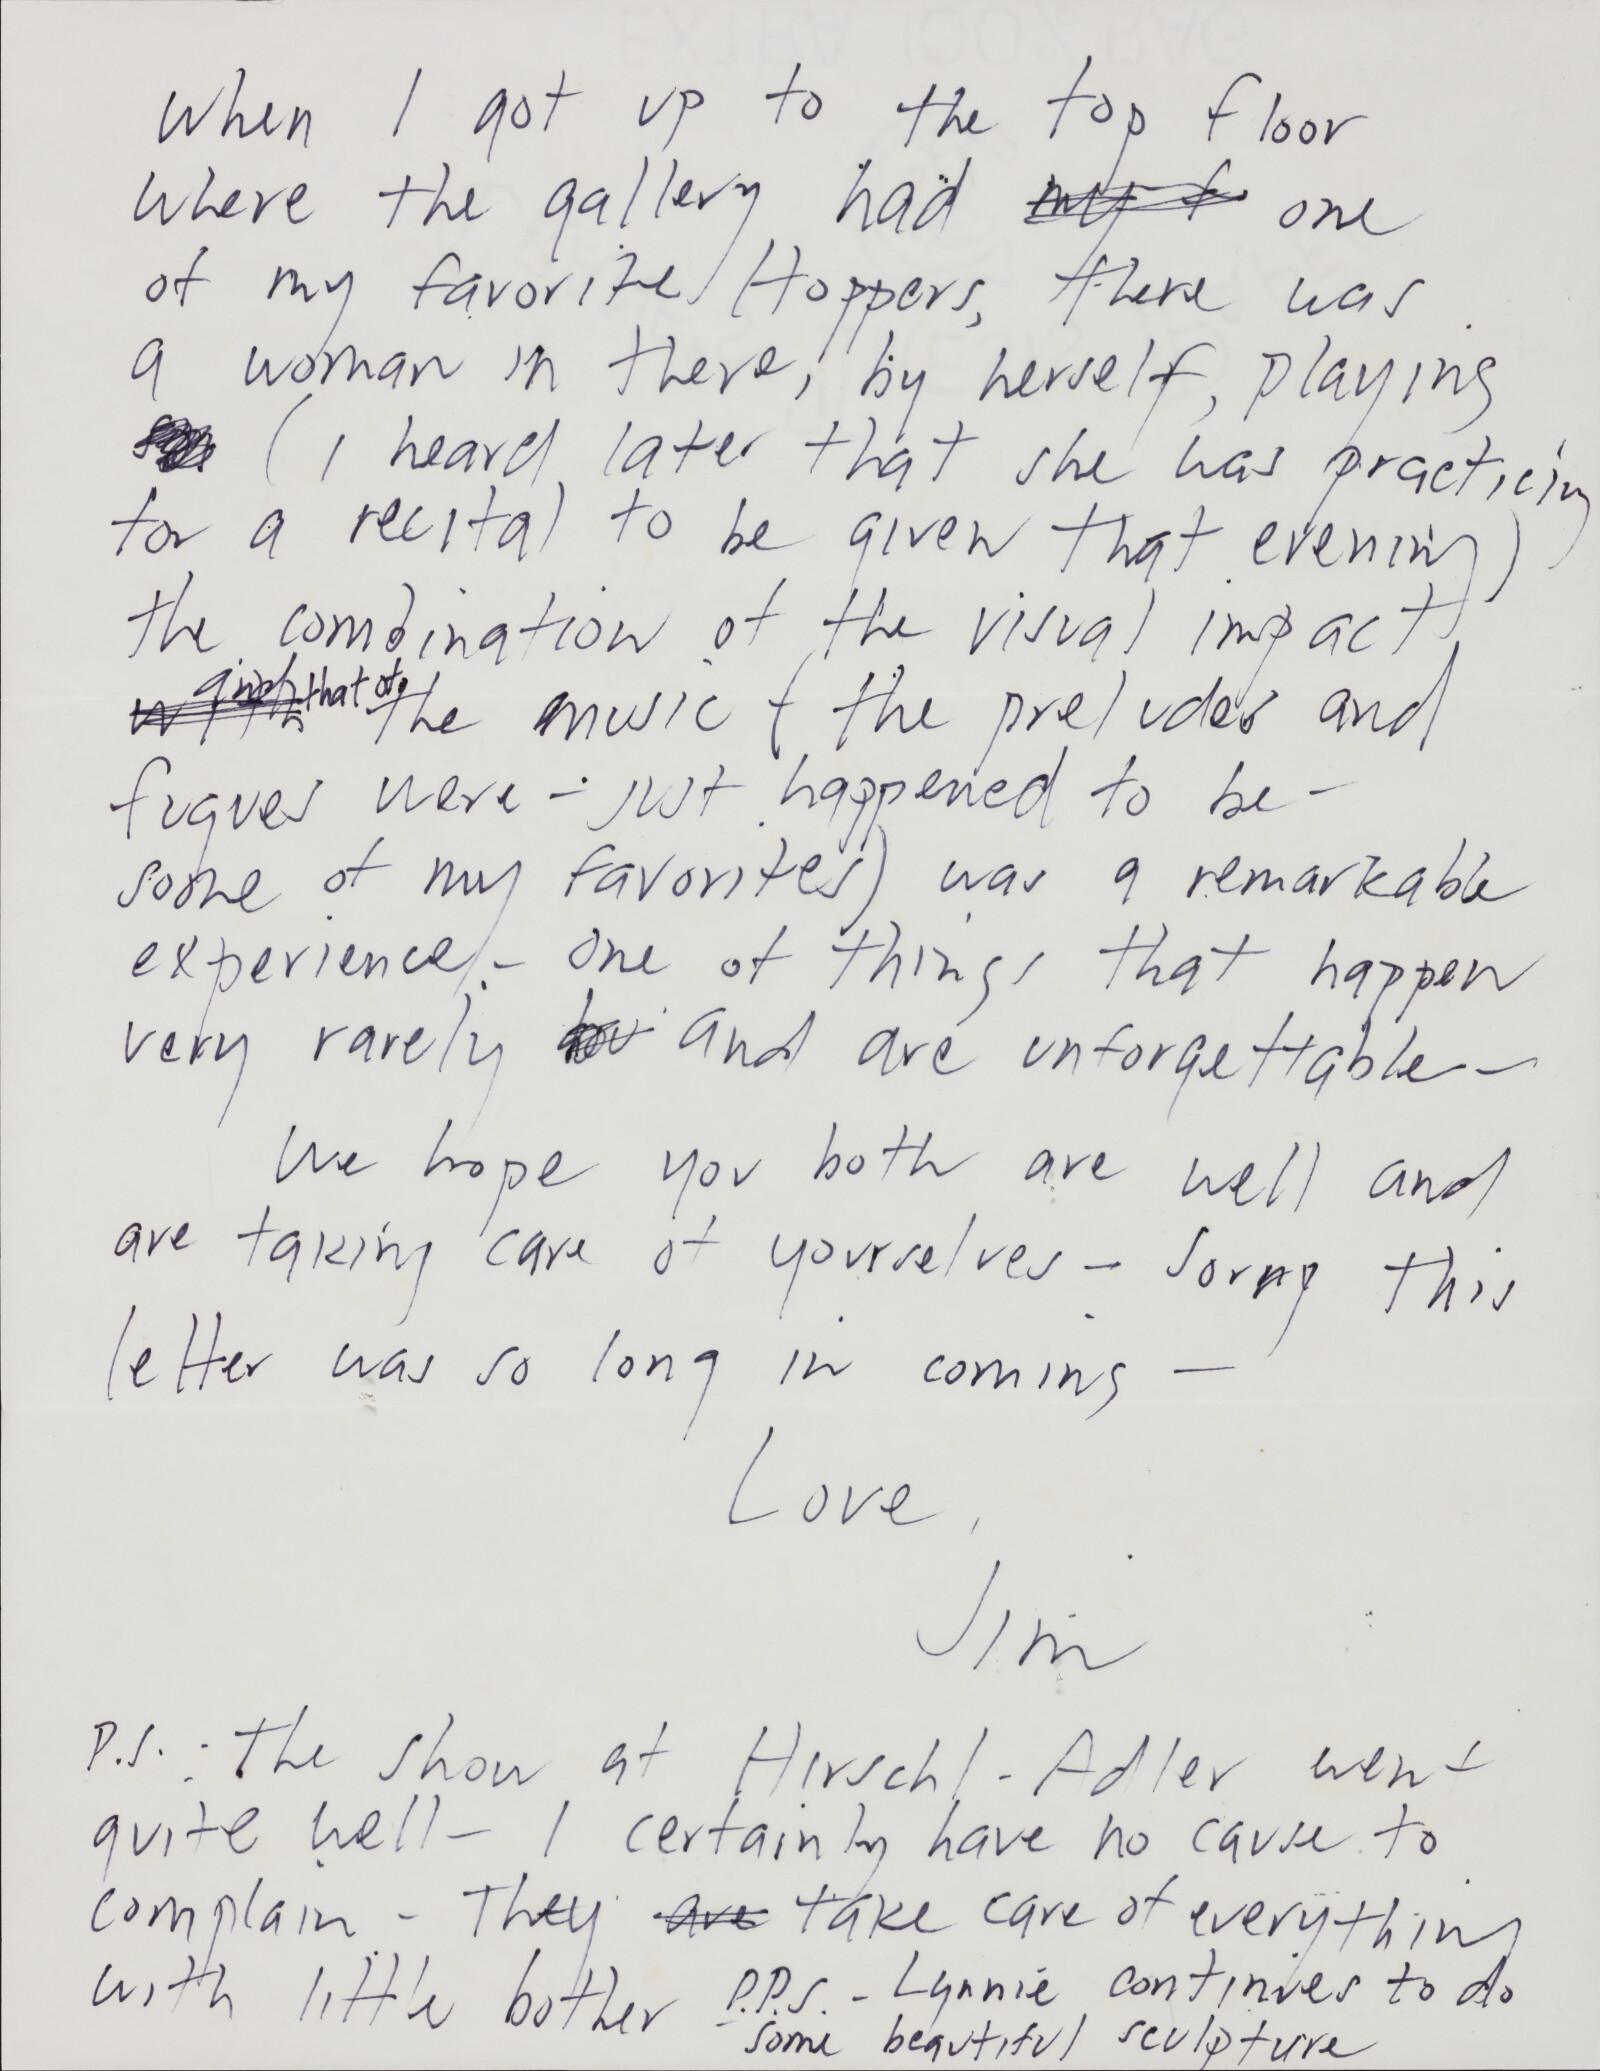 When I got up to the top floor
where the gallery had my f one
of my favorite Hoppers, there was
a woman in there, by herself, playing
(I heard later that she was practicing
for a recital to be given that evening)
the combination of the visual impact
with and that of the music (the preludes and
fugues were - just happened to be -
some of my favorites) was a remarkable
experience - one of things that happen
very rarely and are unforgettable -
We hope you both are well and
are taking care of yourselves - Sorry this
letter was so long in coming -
Love,
Jim
P.S.: The show at Hirschl-Adler went
quite well - I certainly have no cause to
complain - They are take care of everything
with little bother P.P.S. - Lynnie continues to do
some beautiful sculpture